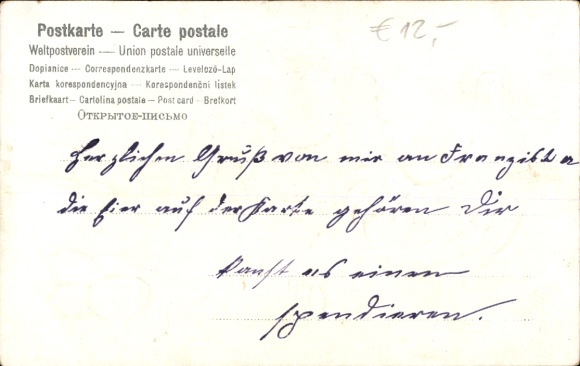 Postkarte — Carte postale
Weltpostverein — Union postale universelle
Dopisnice — Correspondenzkarte — Levelező-Lap
Karta korespondencyjna — Korespondenční lístek
Briefkaart — Cartolina postale — Post card — Brefkort
ОТКРЫТОЕ-ПИСЬМО
€ 12,-
Herzlichen Gruß von mir an Franziska
die Eier auf der Karte gehören Dir
kanst es einen
spendieren.